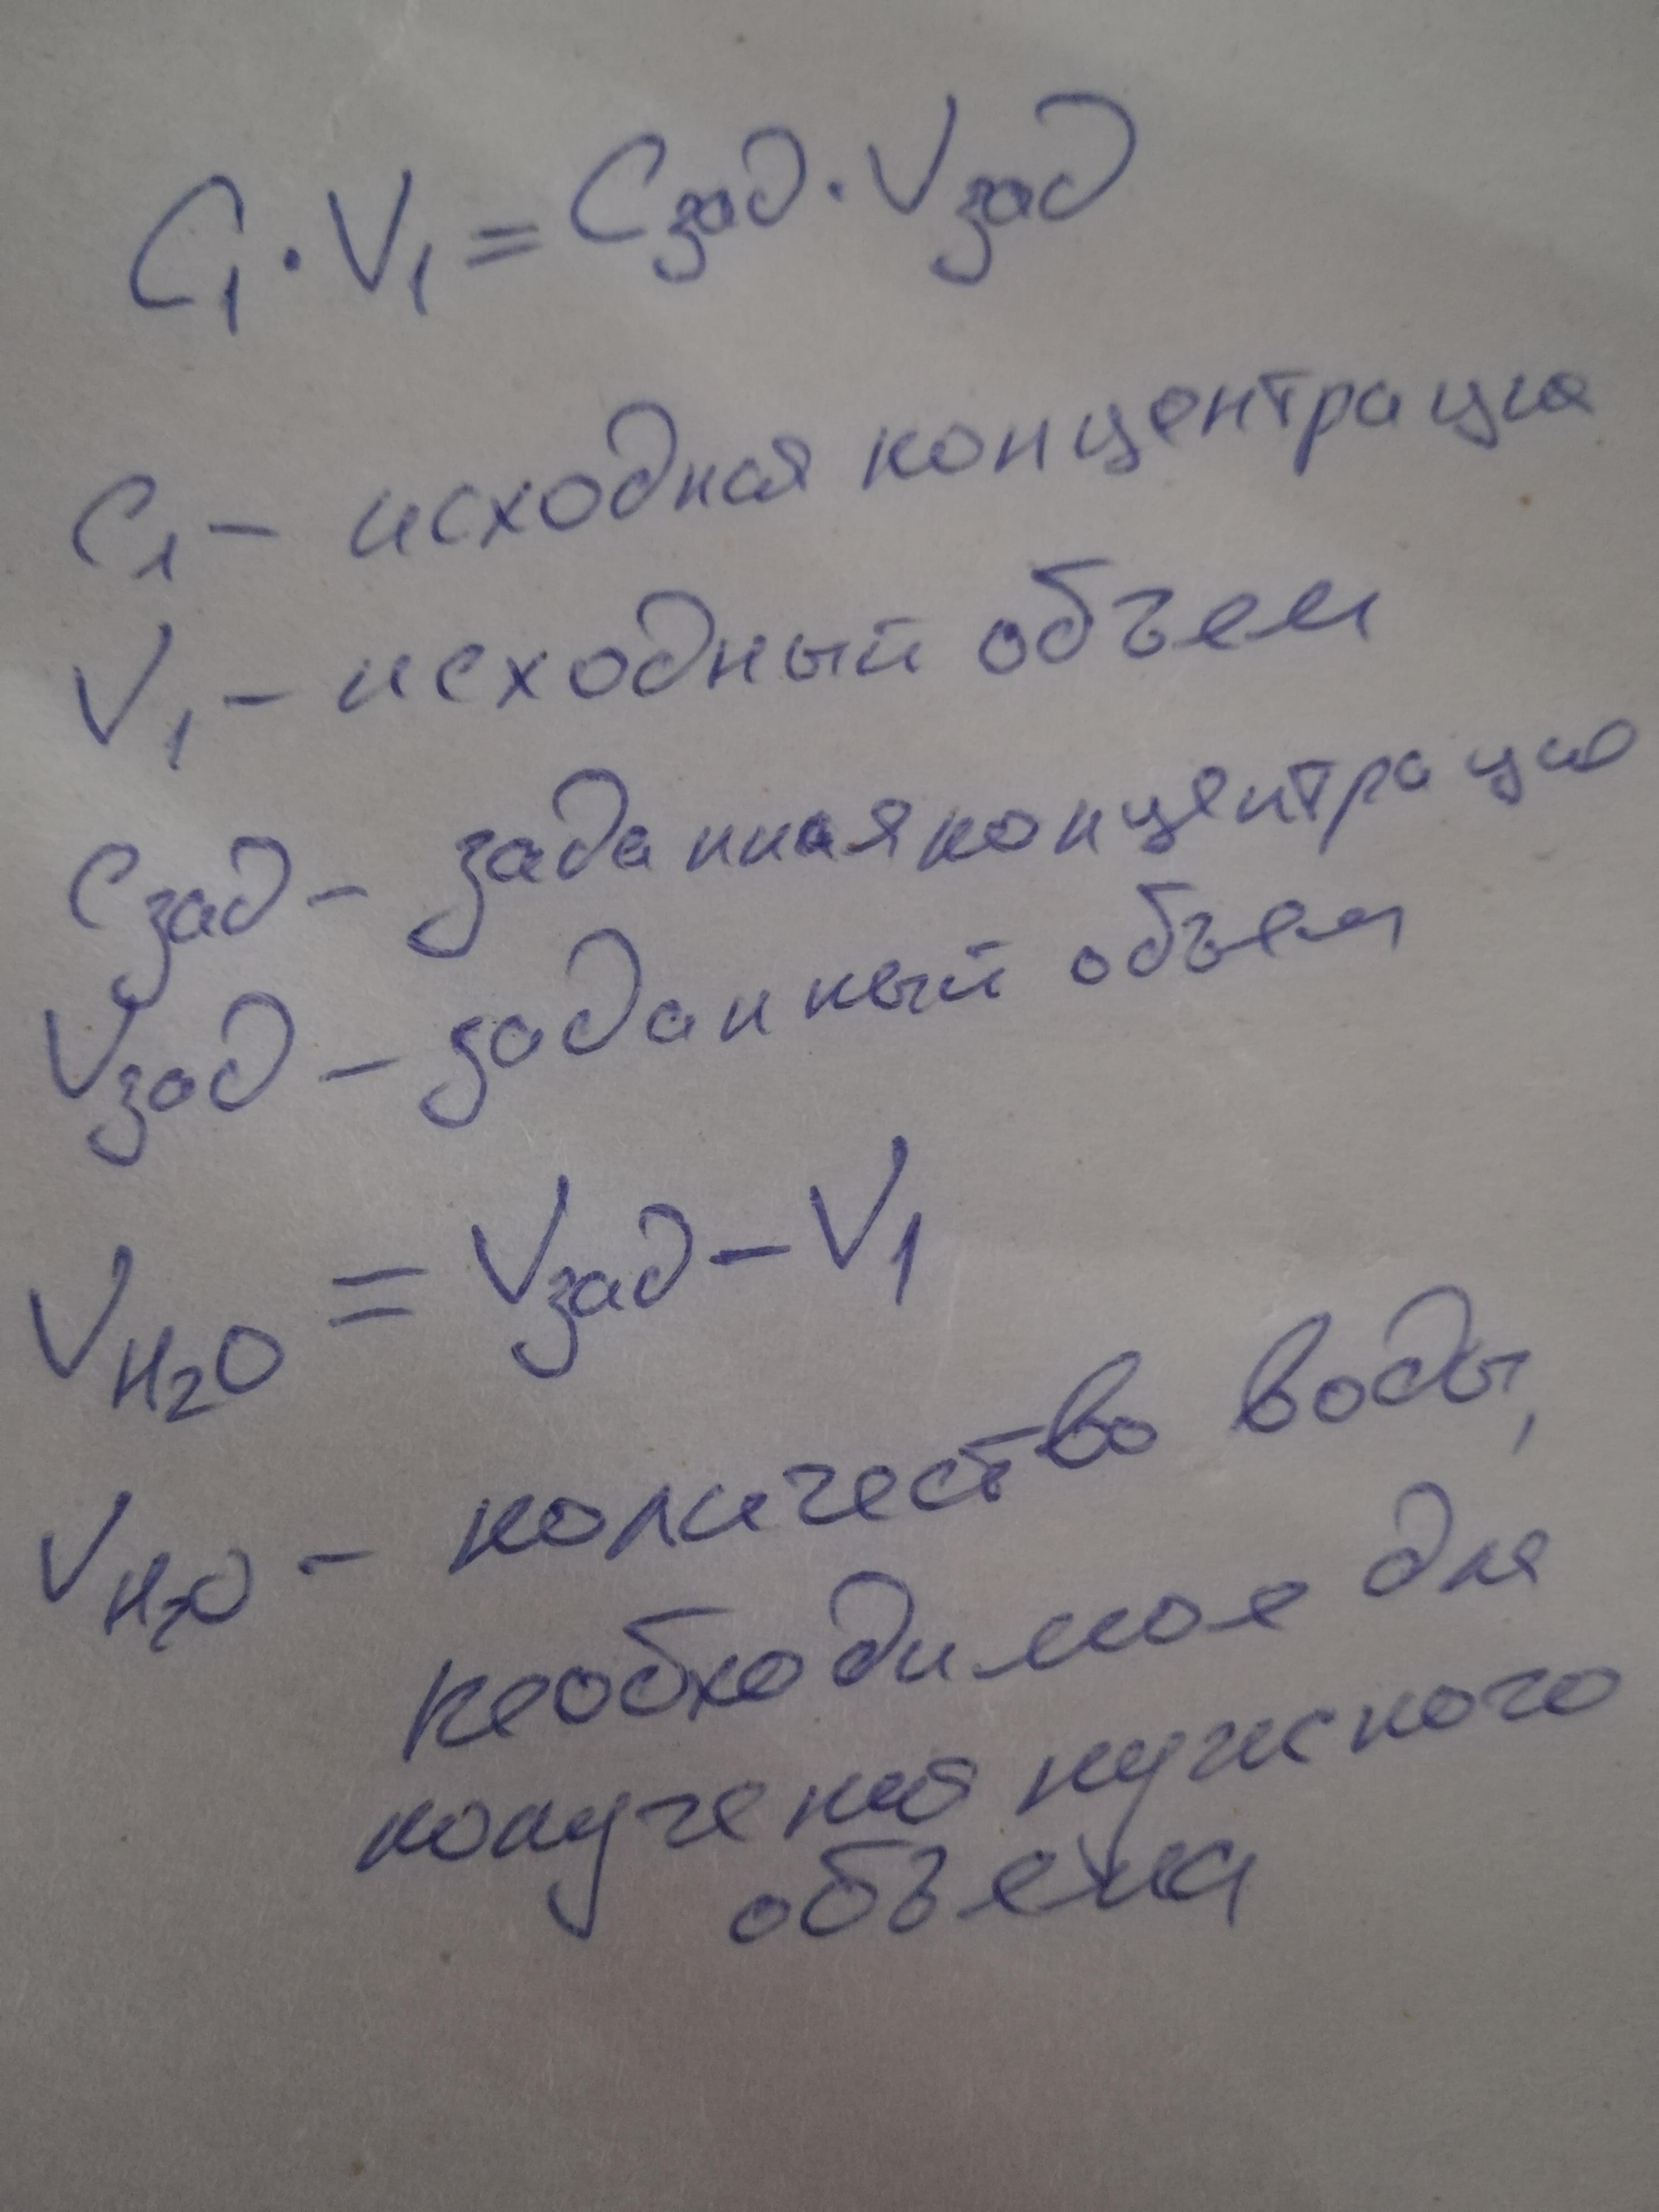 C₁ · V₁ = Cзад · Vзад
C₁ – исходная концентрация
V₁ – исходный объем
Cзад – заданная концентрация
Vзад – заданный объем
V_H₂O = Vзад – V₁
V_H₂O – количество воды,
необходимое для
получения нужного
объема